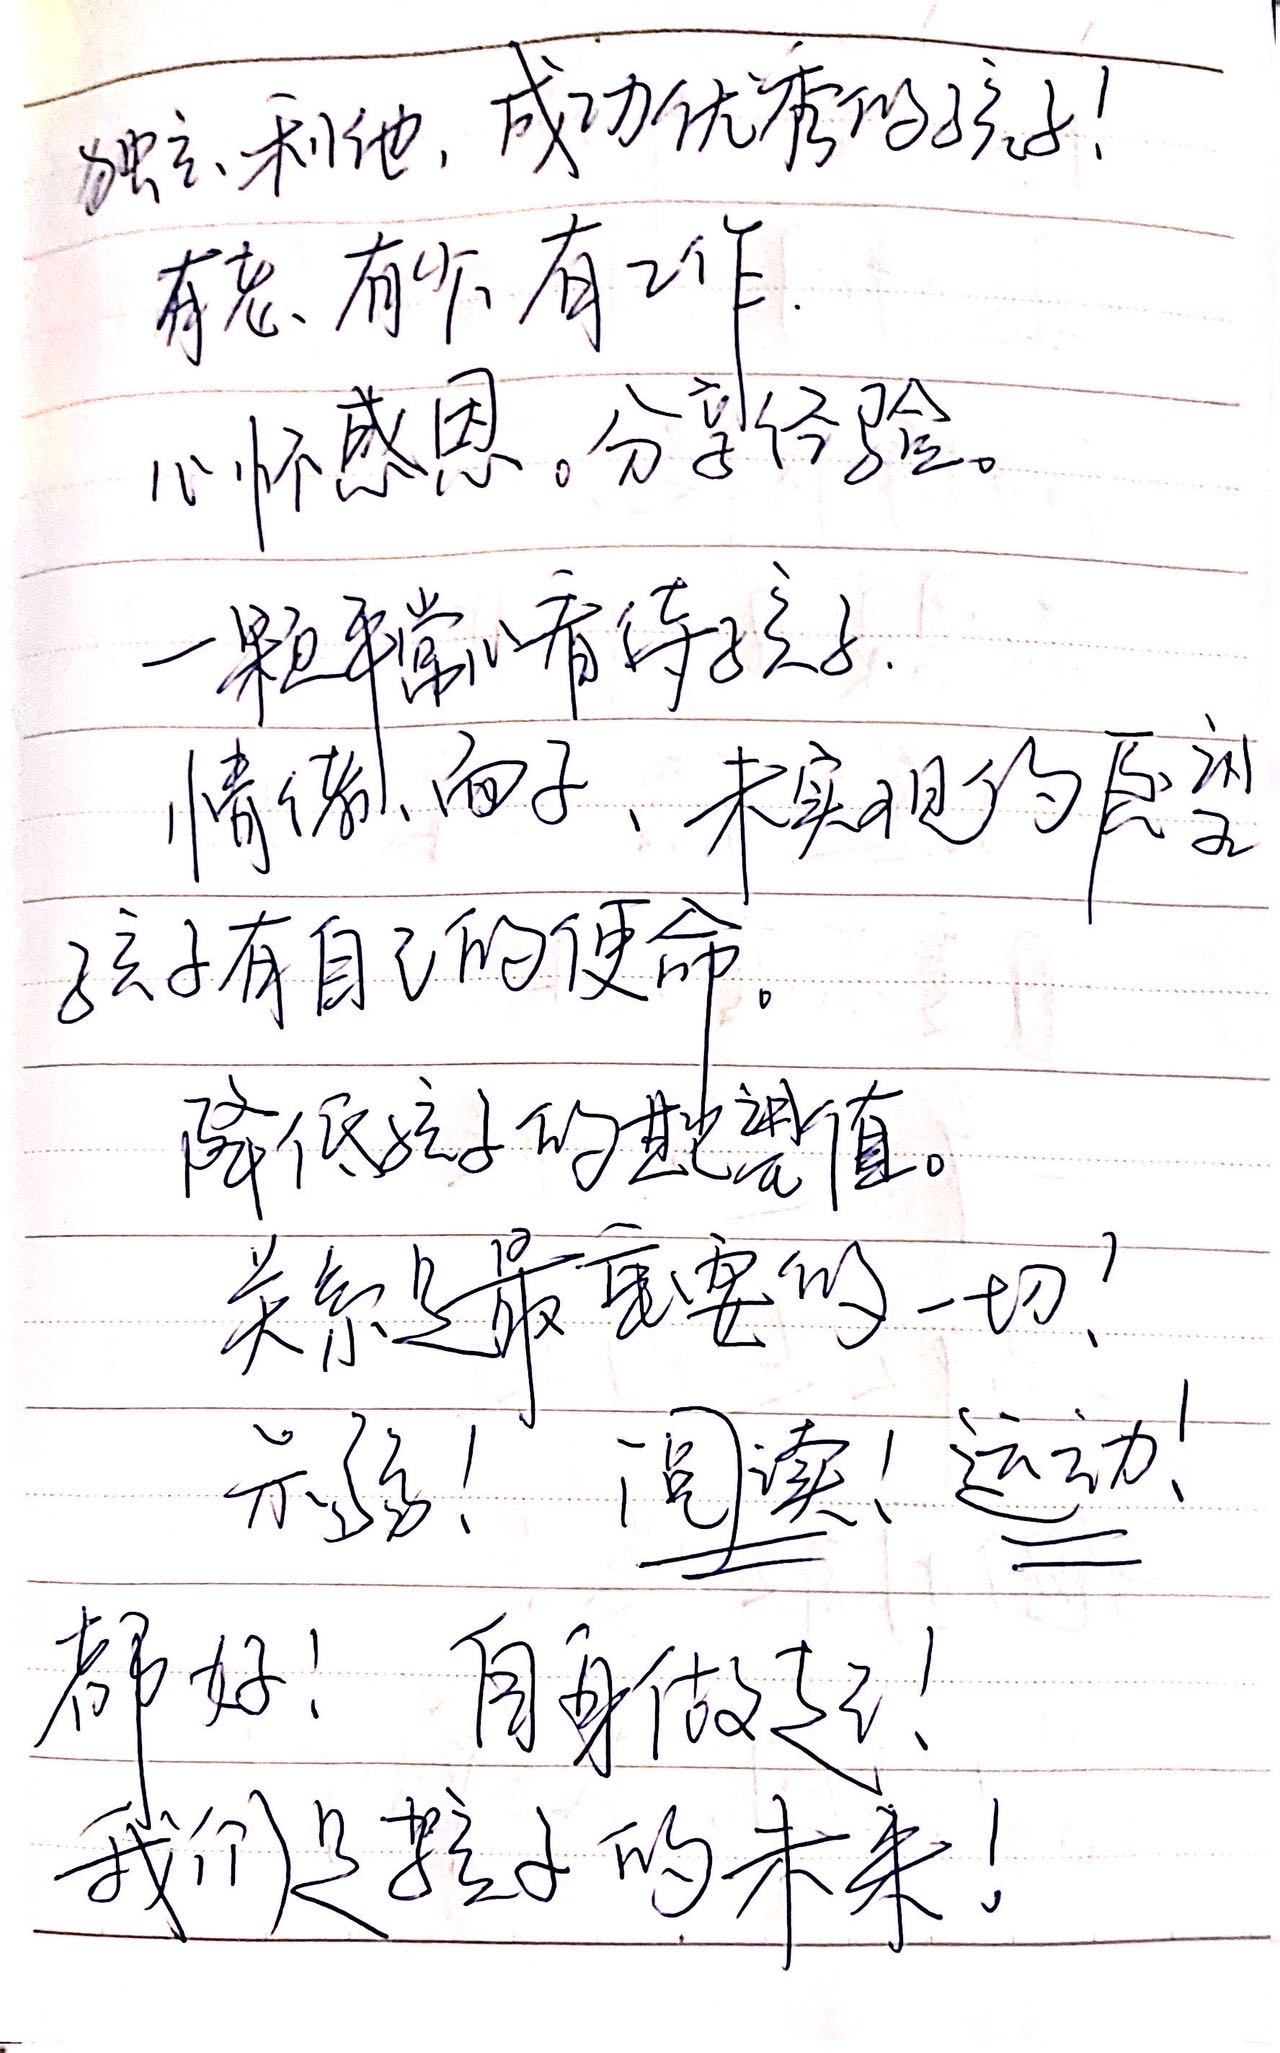 独立、利他,成功优秀的孩子!
有老、有小、有工作.
心怀感恩。分享经验。
一颗平常心看待孩子.
情绪、面子、未实现的愿望
孩子有自己的使命。
降低孩子的期望值。
关系是最重要的一切!
示弱! 阅读! 运动!
都好! 自身做起!
我们是孩子的未来!